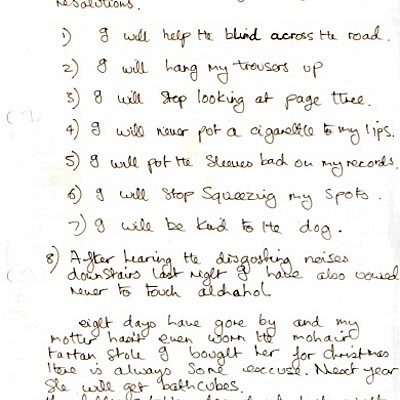 resolutions.
1) I will help the blind across the road.
2) I will hang my trousers up
3) I will stop looking at page three.
4) I will never put a cigarette to my lips.
5) I will put the sleeves back on my records.
6) I will stop squeezing my spots.
7) I will be kind to the dog.
8) After hearing the disgosting noises
downstairs last night I have also vowed
never to touch alchahol.
eight days have gone by and my
motter hasnt even worn the mohair
tartan stole I bought her for christmas
there is always some excuse. Next year
she will get bathcubes.